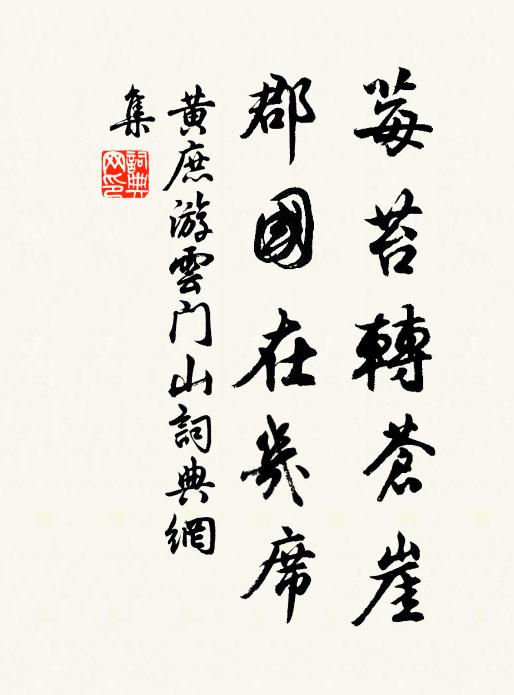 莓苔轉蒼崖
郡國在幾席
黃庶游雲门山詞典網
集
詞典网印